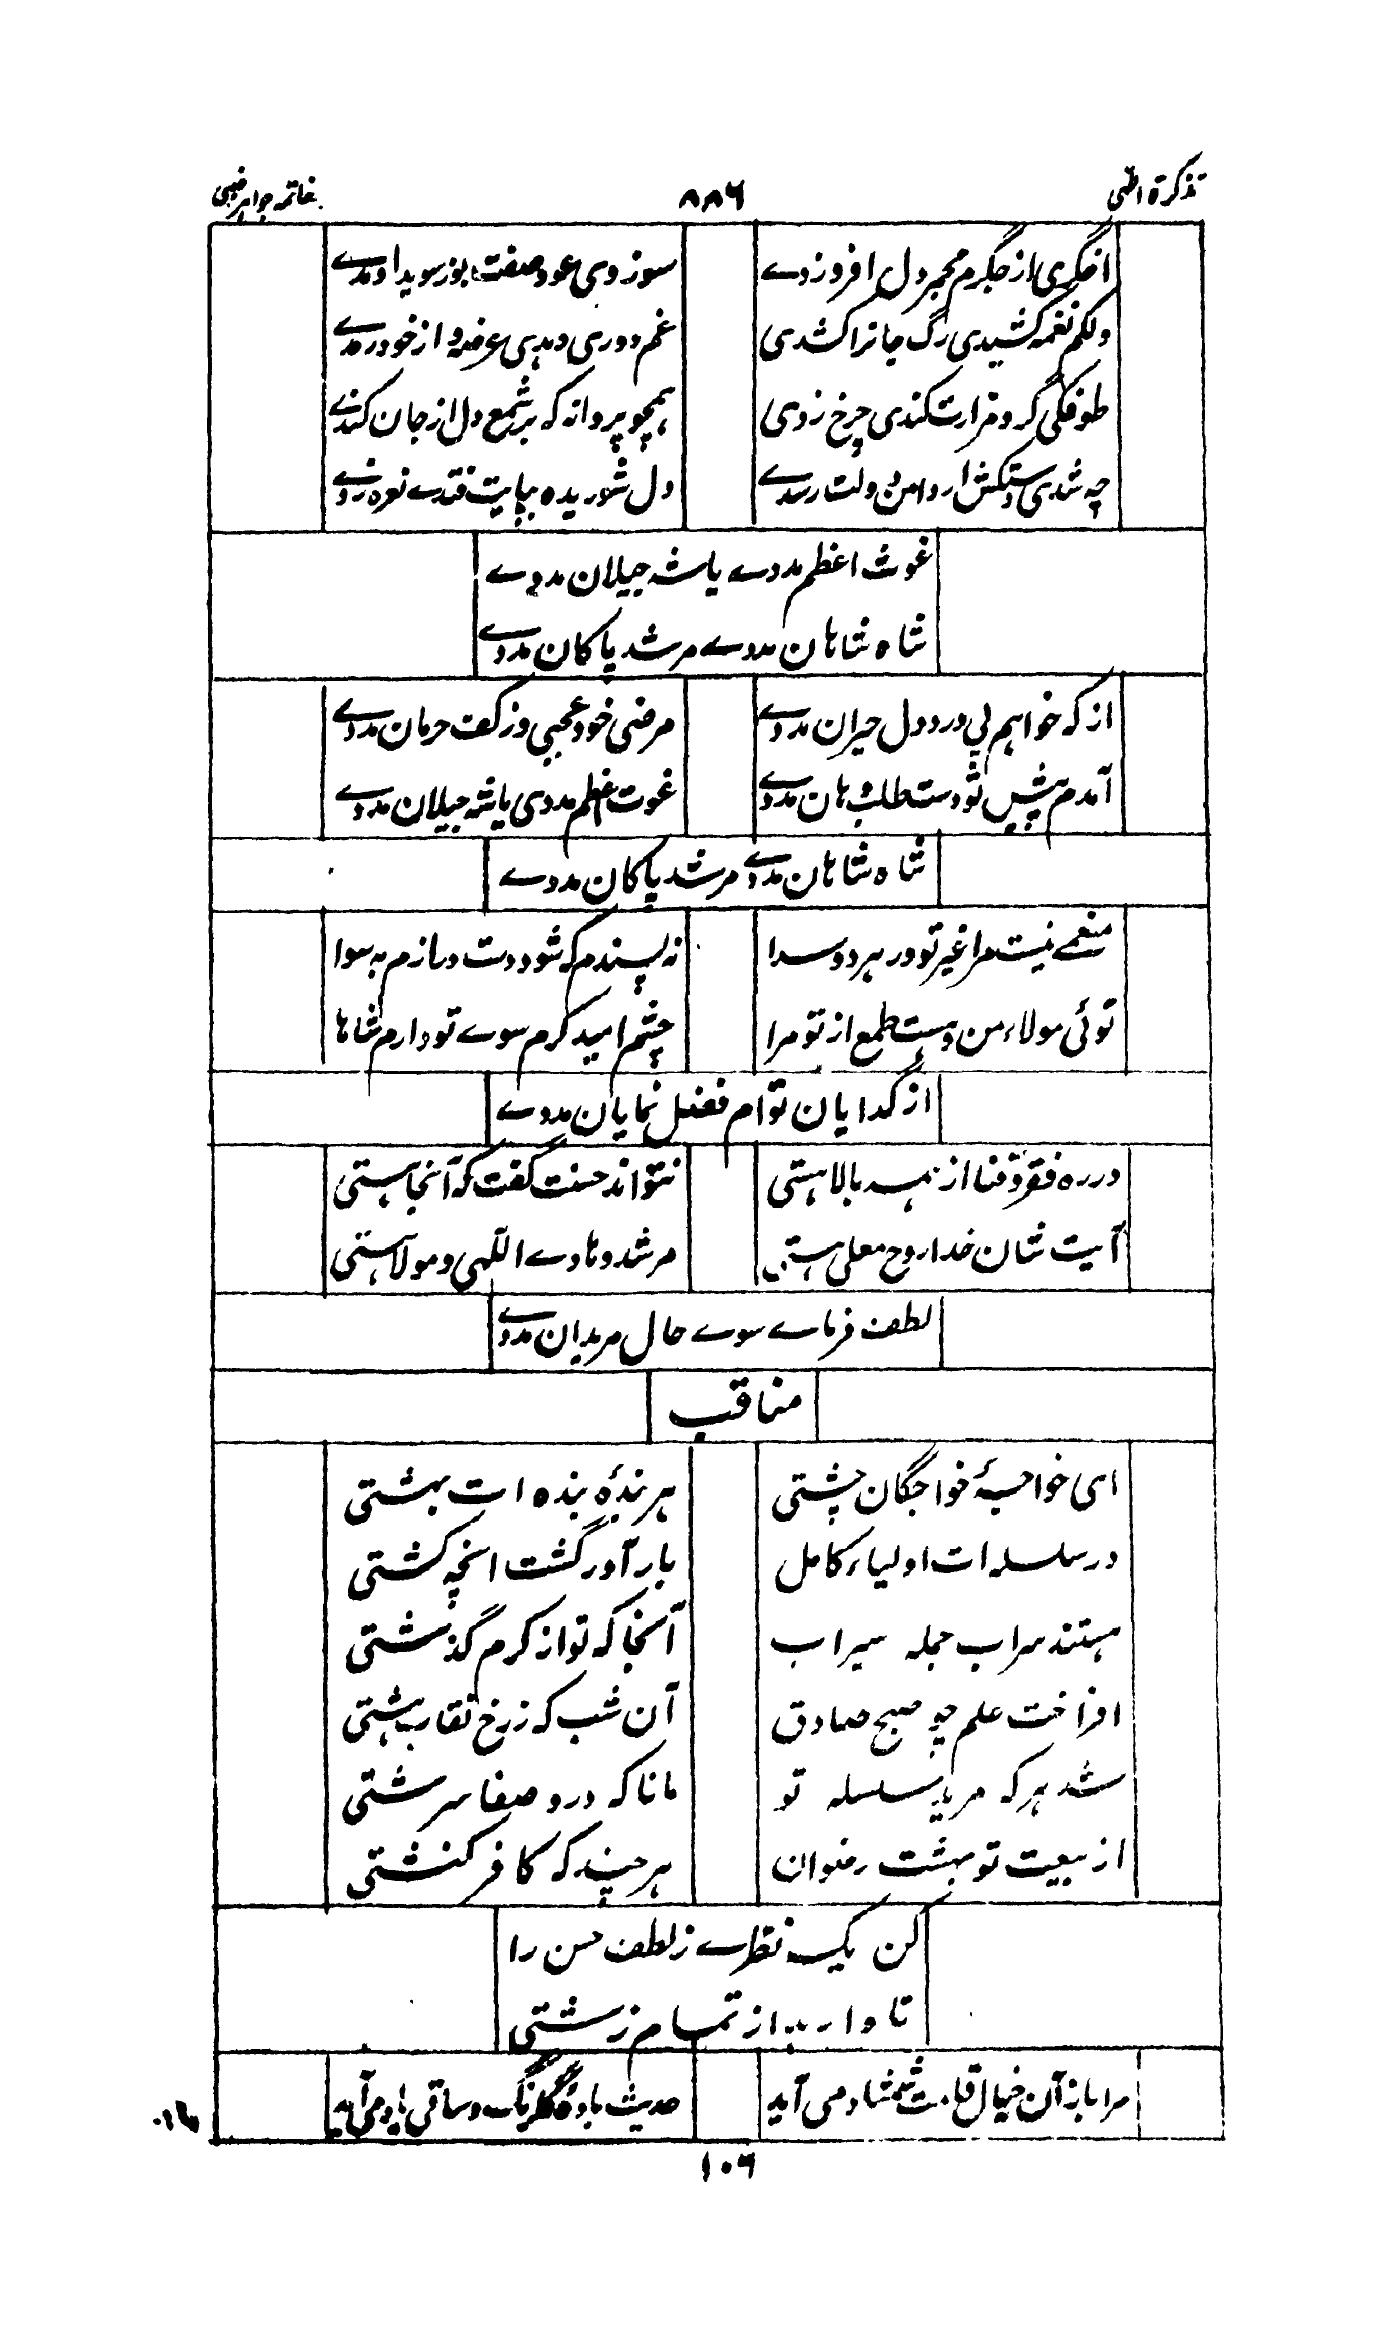 تذکرة الٰہی ۸۸۶ خاتمہ جواہر غیبی
اخگری از جگرم مجمر دل افروزدے سوزدی عود صفت بوز سویدا ومدے
دلکم نغمہ کشیدی رگ جانرا کشدی غم دوری دہدی عرضہ و از خود رمدے
طوفکی گرد مزارت کندی چرخ زدی ہمچو پروانہ کہ بر شمع دل از جان کندے
چہ شدی دستکش ار دامن دولت رسدے دل شوریدہ بپایت فتدے نعرہ زدے
غوث اعظم مددے یا شہ جیلان مددے
شاہ شاہان مددے مرشد پاکان مددے
از کہ خواہم پی درد دل حیران مددے مرضی خود عجبی وز کف حرمان مددے
آمدم پیش تو دست طلب ہان مددے غوث اعظم مددی یا شہ جیلان مددے
شاہ شاہان مددے مرشد پاکان مددے
منعمے نیست مرا غیر تو در ہر دو سدا نہ پسندم کہ شود دست درازم بہ سوا
توئی مولاء من وہست طمع از تو مرا چشم امید کرم سوے تو دارم شاہا
از گدایان توام فضل نمایان مددے
در رہ فقر و فنا از ہمہ بالا ہستی نتواند حسنت گفت کہ آنجا ہستی
آیت شان خدا روح معلی ہستی مرشد و ہادے اللہی و مولا ہستی
لطف فرماے سوے حال مریدان مددے
مناقب
ای خواجۂ خواجگان چشتی ہر بندۂ بندہ ات بہشتی
در سلسلہ ات اولیاء کامل بار آور گشت انچہ کشتی
ہستند سراب جملہ سیراب آنجا کہ تو از کرم گذشتی
افراخت علم چو صبح صادق آن شب کہ ز رخ نقاب ہشتی
شد ہر کہ مرید سلسلہ تو مانا کہ در و صفا سرشتی
از بیعت تو بہشت رضوان ہر چند کہ کافر کنشتی
کن یک نظرے ز لطف حسن را
تا وا رہد از تمام زشتی
مرا باز آن خیال قامت شمشاد می آید حدیث بادۂ گلرنگ و ساقی یاد می آید
۱۰۶